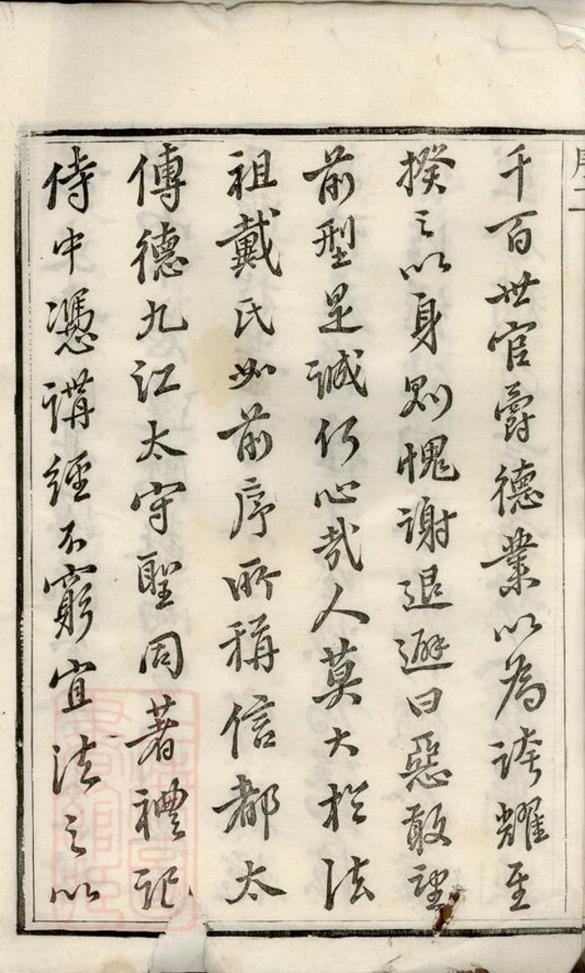 序二
千百世官爵德業以為誇耀至
揆之以身則愧謝退避曰惡敢望
前型是誠何心哉人莫大於法
祖戴氏如前序所稱信都太
傅德九江太守聖同著禮記
侍中憑講經不窮宜法之以